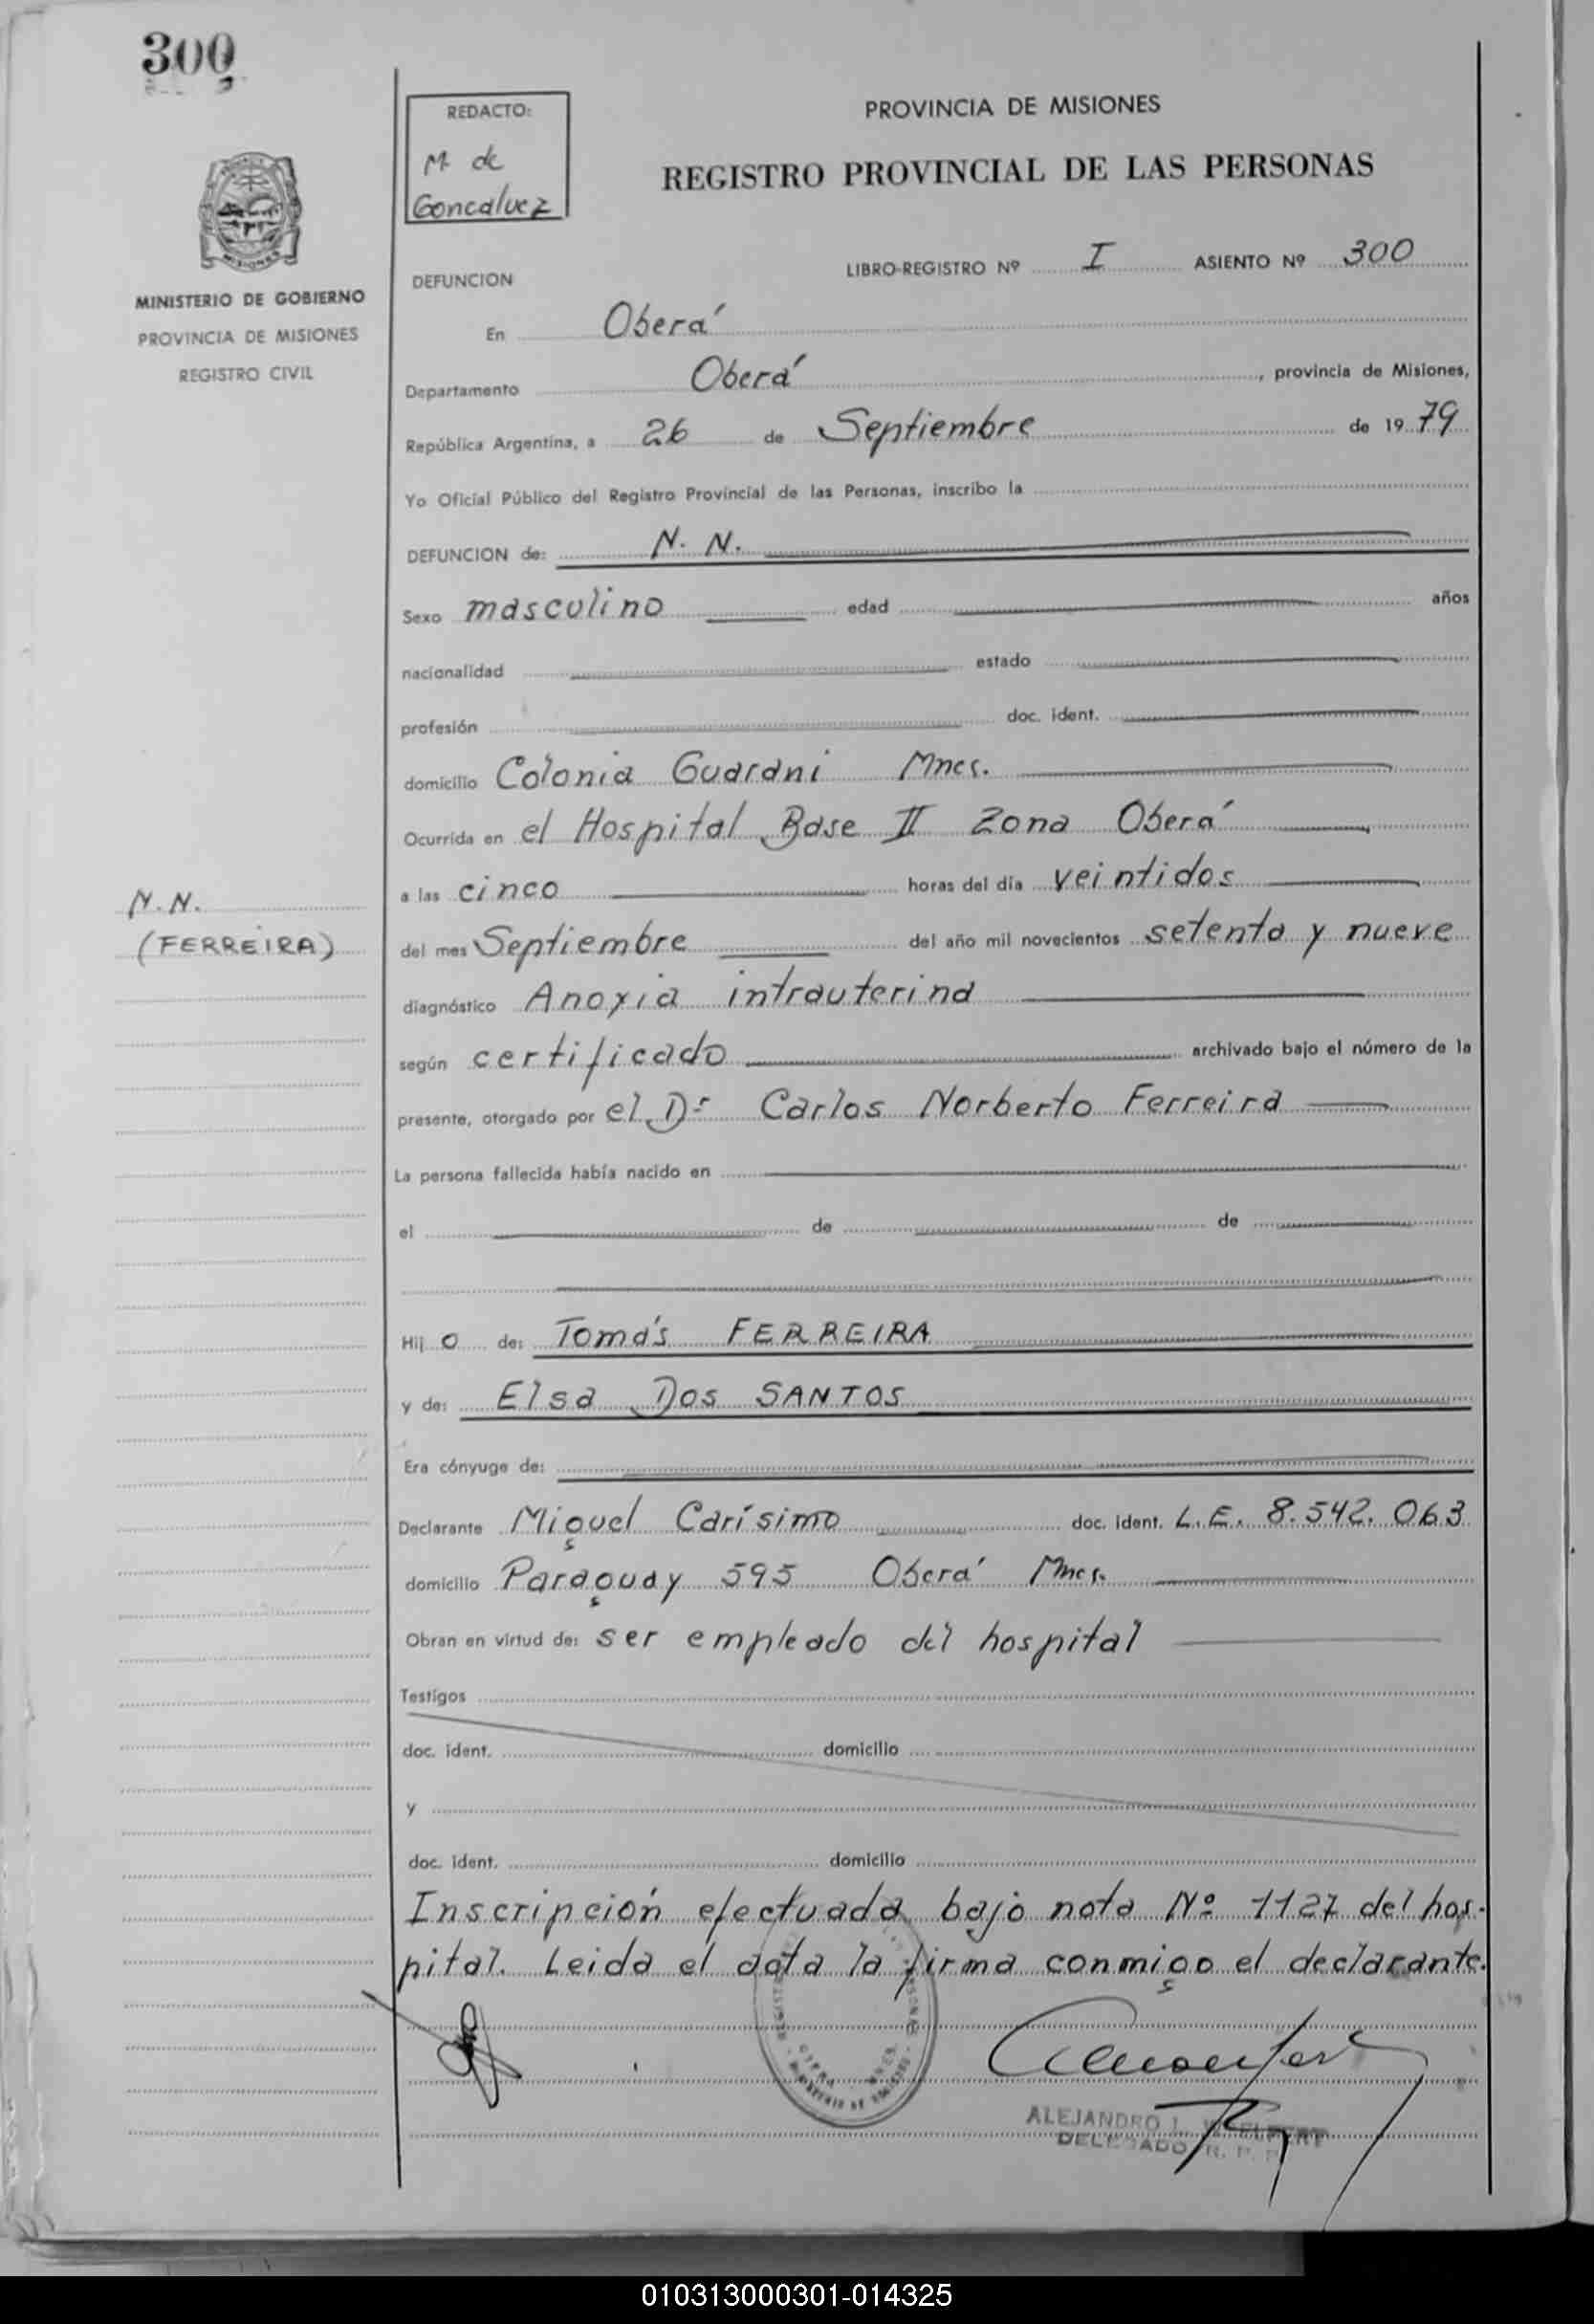 300
REDACTO:
M de
Goncalvez
PROVINCIA DE MISIONES
REGISTRO PROVINCIAL DE LAS PERSONAS
MISIONES
MINISTERIO DE GOBIERNO
PROVINCIA DE MISIONES
REGISTRO CIVIL
LIBRO-REGISTRO Nº I ASIENTO Nº 300
DEFUNCION
En Oberá
Departamento Oberá, provincia de Misiones,
República Argentina, a 26 de Septiembre de 1979
Yo Oficial Público del Registro Provincial de las Personas, inscribo la
DEFUNCION de: N. N.
Sexo masculino edad años
nacionalidad estado
profesión doc. ident.
domicilio Colonia Guarani Mnes.
Ocurrida en el Hospital Base II Zona Oberá
a las cinco horas del día veintidos
N.N.
(FERREIRA)
del mes Septiembre del año mil novecientos setenta y nueve
diagnóstico Anoxia intrauterina
según certificado archivado bajo el número de la
presente, otorgado por el Dr Carlos Norberto Ferreira
La persona fallecida había nacido en
el de de
Hij o de: Tomás FERREIRA
y de: Elsa Dos SANTOS
Era cónyuge de:
Declarante Miguel Carísimo doc. ident. L.E. 8.542.063
domicilio Paraguay 595 Oberá Mnes.
Obran en virtud de: ser empleado del hospital
Testigos
doc. ident. domicilio
y
doc. ident. domicilio
Inscripción efectuada bajo nota Nº 1127 del hos-
pital. Leida el acta la firma conmigo el declarante.
ALEJANDRO L.
DELEGADO R. P. P.
010313000301-014325